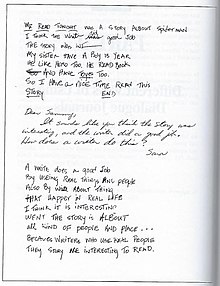 WE READ TONIGHT WAS A STORY ABOUT SPIDERMAN
I THINK THE WRITER good JOB
THE STORY WAS
MY SISTER GAVE A BOY IS YEAR
HE LIKE HERO TOO. HE READ BOOK
AND HAVE TOYS TOO.
SO I HAVE A NICE TIME READ THIS
STORY END
Dear Tommy,
It sounds like you think the story was
interesting, and the writer did a good job.
How does a writer do this?
Sara
A WRITE DOES A GOOD JOB
BY USEING REAL THING AND PEOPLE
ALSO BY ABOUT THING
THAT HAPPEN IN REAL LIFE
I THINK IT IS INTERESTING
WENT THE STORY IS ALBOUT
ALL KIND OF PEOPLE AND PLACE...
BECAUSE WRITERS WHO USE REAL PEOPLE
THEY STORY ARE INTERESTING TO READ.